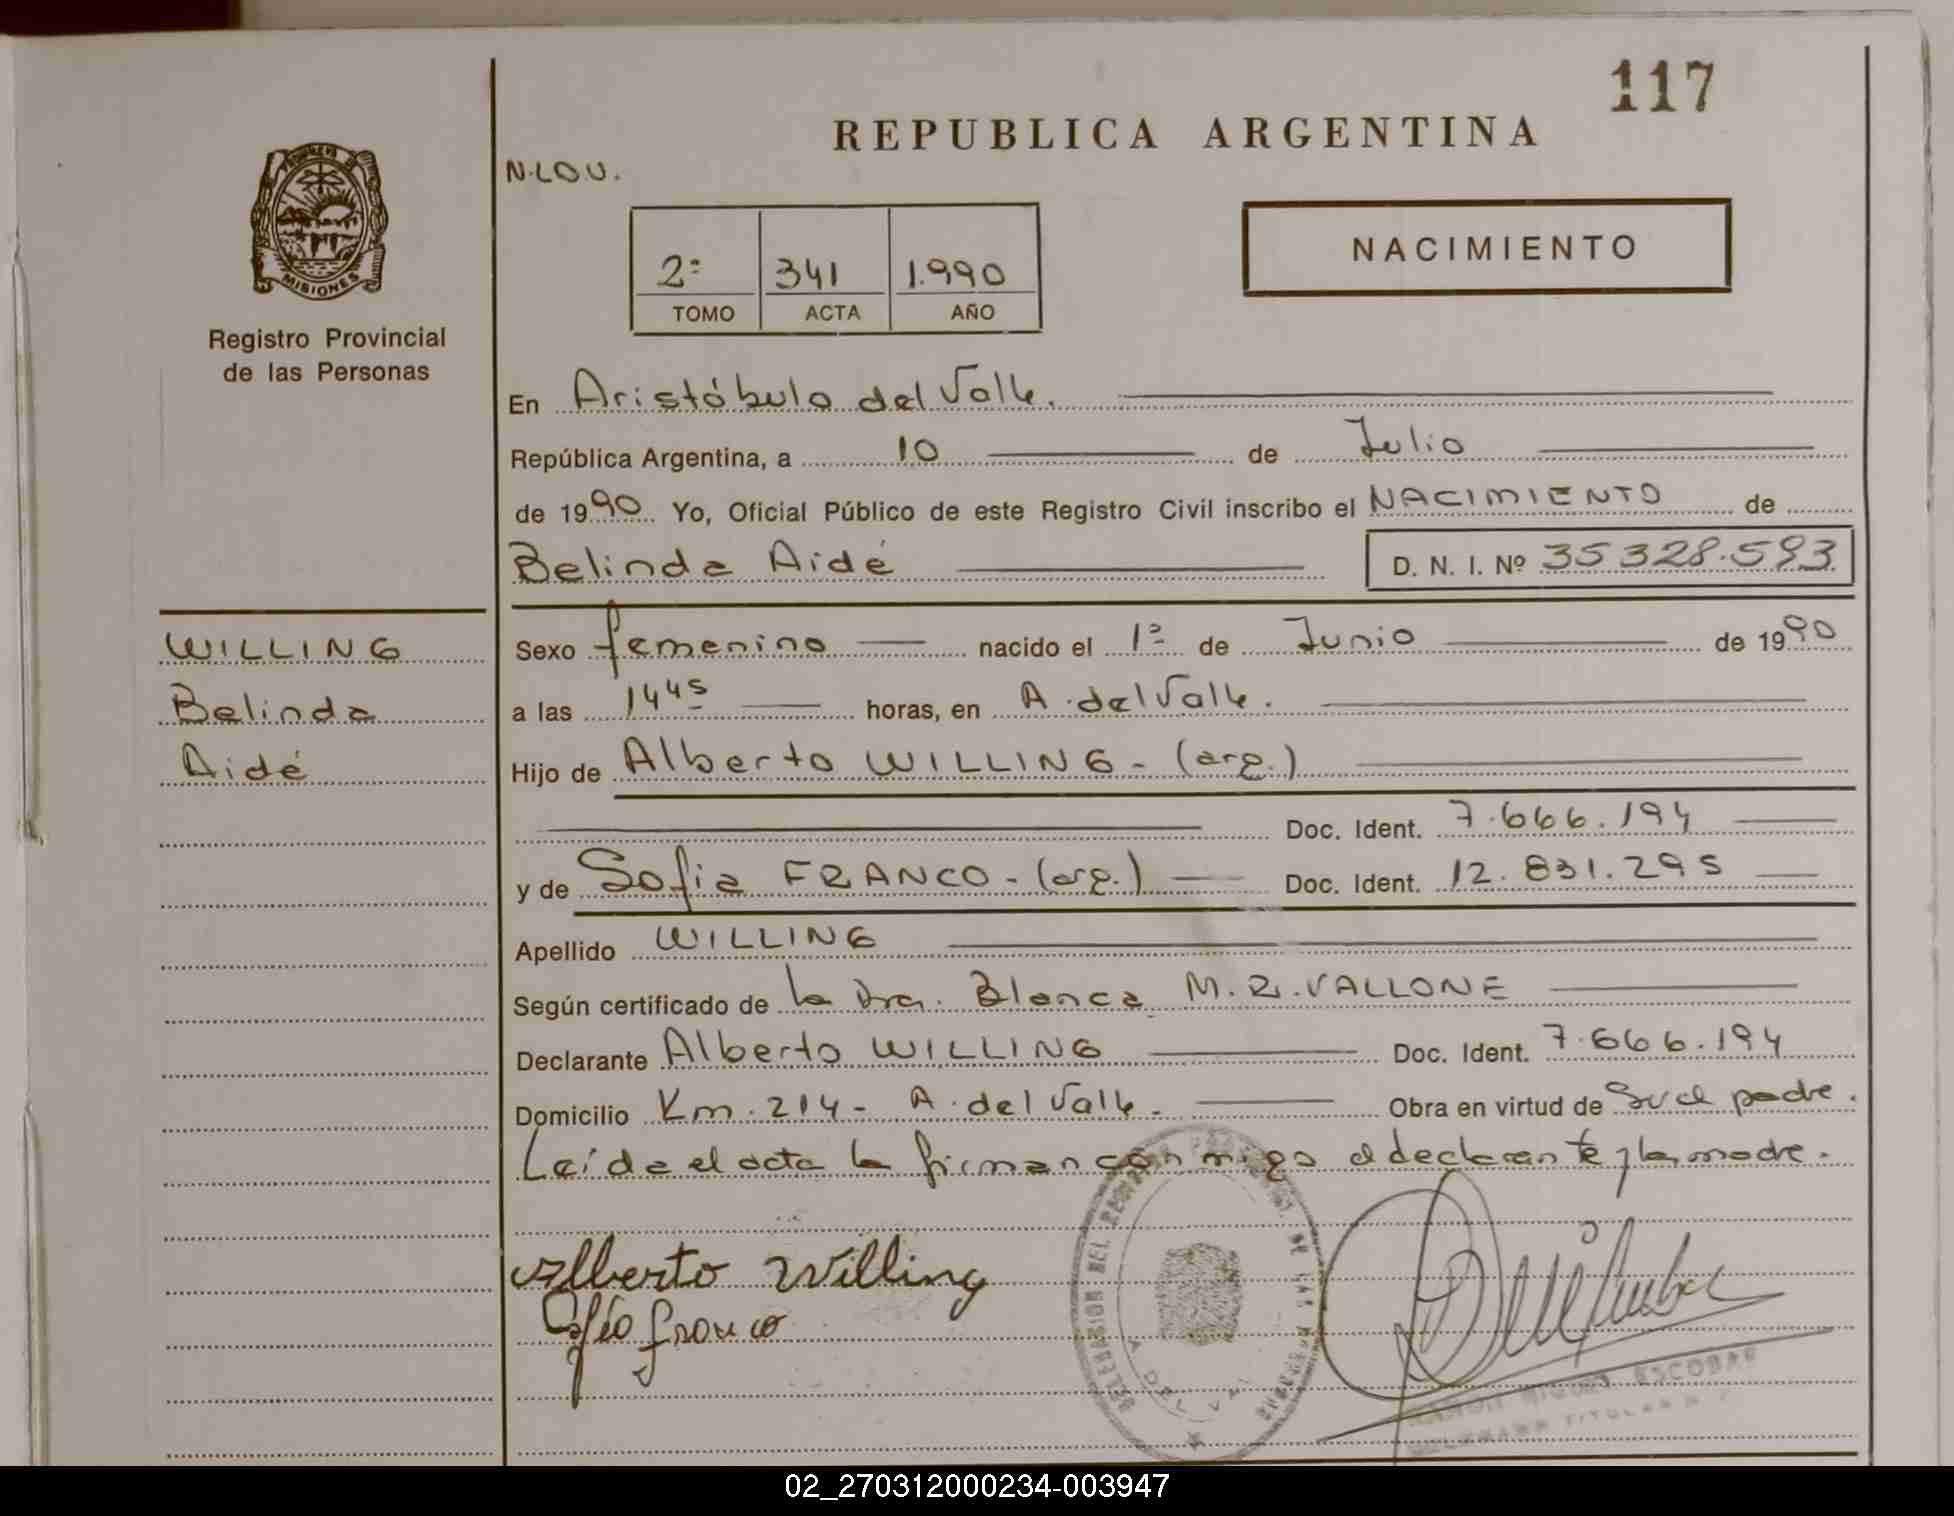 117
REPUBLICA ARGENTINA
N.LO.U.
MISIONES
Registro Provincial
de las Personas
2º 341 1.990
TOMO ACTA AÑO
NACIMIENTO
En Aristóbulo del Valle.
República Argentina, a 10 de Julio
de 1990 Yo, Oficial Público de este Registro Civil inscribo el NACIMIENTO de
Belinda Aidé D. N. I. Nº 35328.593
WILLING
Belinda
Aidé
Sexo femenino nacido el 1º de Junio de 1990
a las 1445 horas, en A. del Valle.
Hijo de Alberto WILLING - (arg.)
Doc. Ident. 7.666.194
y de Sofia FRANCO - (arg.) Doc. Ident. 12.831.295
Apellido WILLING
Según certificado de la Dra. Blanca M. R. VALLONE
Declarante Alberto WILLING Doc. Ident. 7.666.194
Domicilio Km. 214 - A. del Valle. Obra en virtud de Ser el padre.
Leída el acta la firman conmigo el declarante y la madre.
Alberto Willing
Sofia franco
DELEGACION DEL DE LAS PERSONAS
A. DEL VALLE
RAMON MIGUEL ESCOBAR
TITULAR
02_270312000234-003947